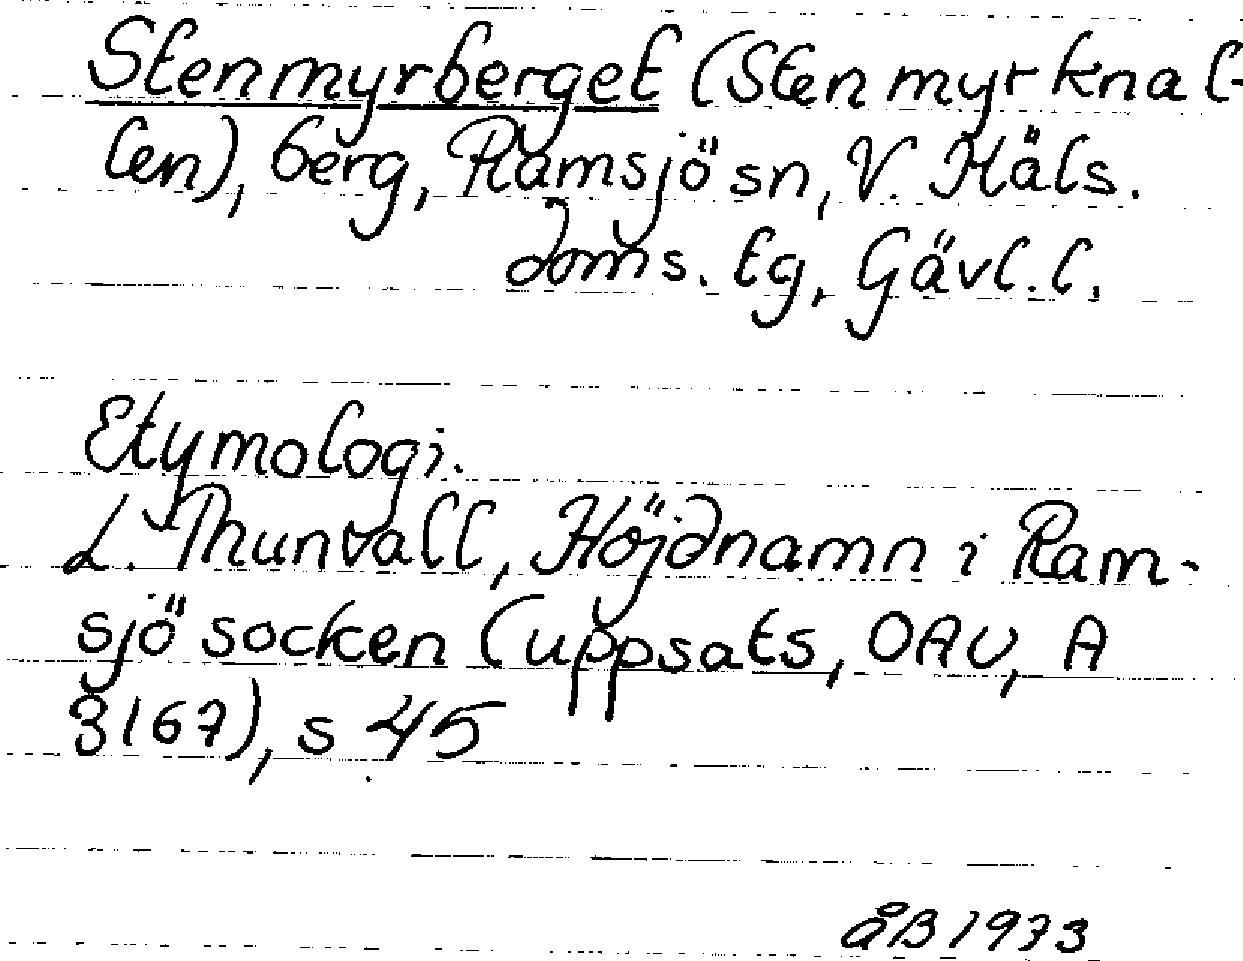 Stenmyrberget (Stenmyrknal-
len), berg, Ramsjö sn, V. Häls.
doms. tg, Gävl.l.
Etymologi.
L. Thunvall, Höjdnamn i Ram-
sjö socken (uppsats, OAU, A
3167), s 45
ÅB 1973